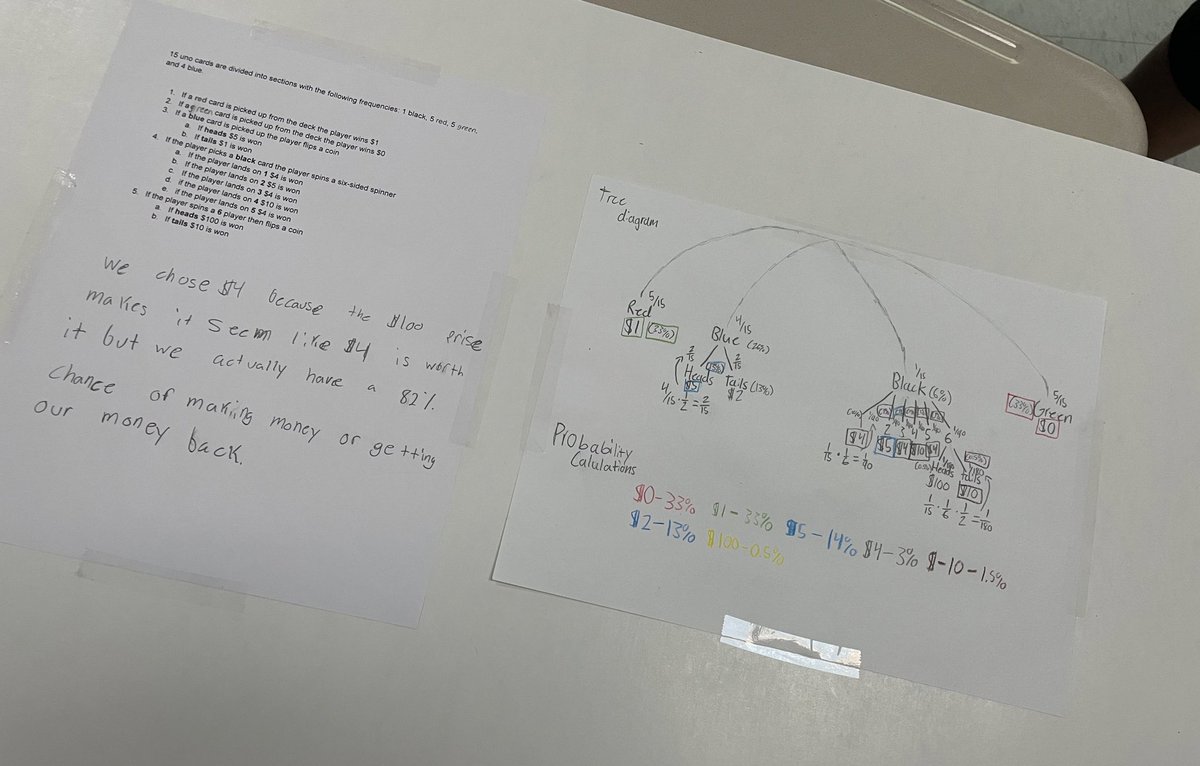 15 uno cards are divided into sections with the following frequencies: 1 black, 5 red, 5 green,
and 4 blue.
1. If a red card is picked up from the deck the player wins $1
2. If a green card is picked up from the deck the player wins $0
3. If a blue card is picked up the player flips a coin
a. If heads $5 is won
b. If tails $1 is won
4. If the player picks a black card the player spins a six-sided spinner
a. If the player lands on 1 $4 is won
b. If the player lands on 2 $5 is won
c. If the player lands on 3 $4 is won
d. If the player lands on 4 $10 is won
e. If the player lands on 5 $4 is won
5. If the player spins a 6 player then flips a coin
a. If heads $100 is won
b. If tails $10 is won
We chose $4 because the $100 prise
makes it seem like $4 is worth
it but we actually have a 82%
chance of making money or getting
our money back.
Tree
diagram
5/15
Red
$1 (33%)
4/15
Blue (26%)
2/15 2/15
Heads Tails (13%)
$5 $2
4/15 · 1/2 = 2/15
1/15
Black (6%)
2 3 4 5 6
$4 $5 $4 $10 $4
1/15 · 1/6 = 1/90
Heads tails
$100 $10
1/15 · 1/6 · 1/2 = 1/180
5/15
(33%) Green
$0
Probability
Calulations
$0-33% $1-33% $5-14% $4-3% $-10-1.5%
$2-13% $100-0.5%